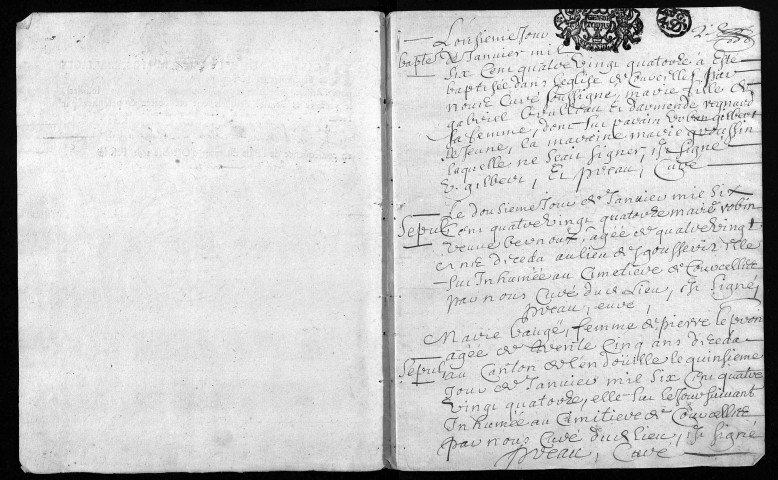 L'onsieme Jour
bapte de Janvier mil
Six Cent quatre vingt quatorze a esté
baptisée dans l'eglise de Courcelles par
nous Curé soussigné, marie fille de
gabriel et daymonde regnard
sa femme, dont fut parain urben gilbert
le Jeune, la maraine marie poussin
laquelle ne scait signer, Et signé
V. gilbert, Et preau, Curé
Le dousieme Jour de Janvier mil six
Sepul Cent quatre vingt quatorze marie robin
veuve bernoux, agée de quatre vingt
cinq deceda au lieu de elle
fut Inhumée au Cimetiere de Courcelles
par nous Curé dud lieu, Et signé
preau, curé,
Marie baugé, femme de pierre lepron
agée de trente Cinq ans deceda
Sepul au Canton de l'endouille le quinsieme
Jour de Janvier mil six Cent quatre
vingt quatorze, elle fut le Jour suivant
Inhumée au Cimitiere de Courcelles
par nous Curé dud lieu, Et signé
preau, Curé